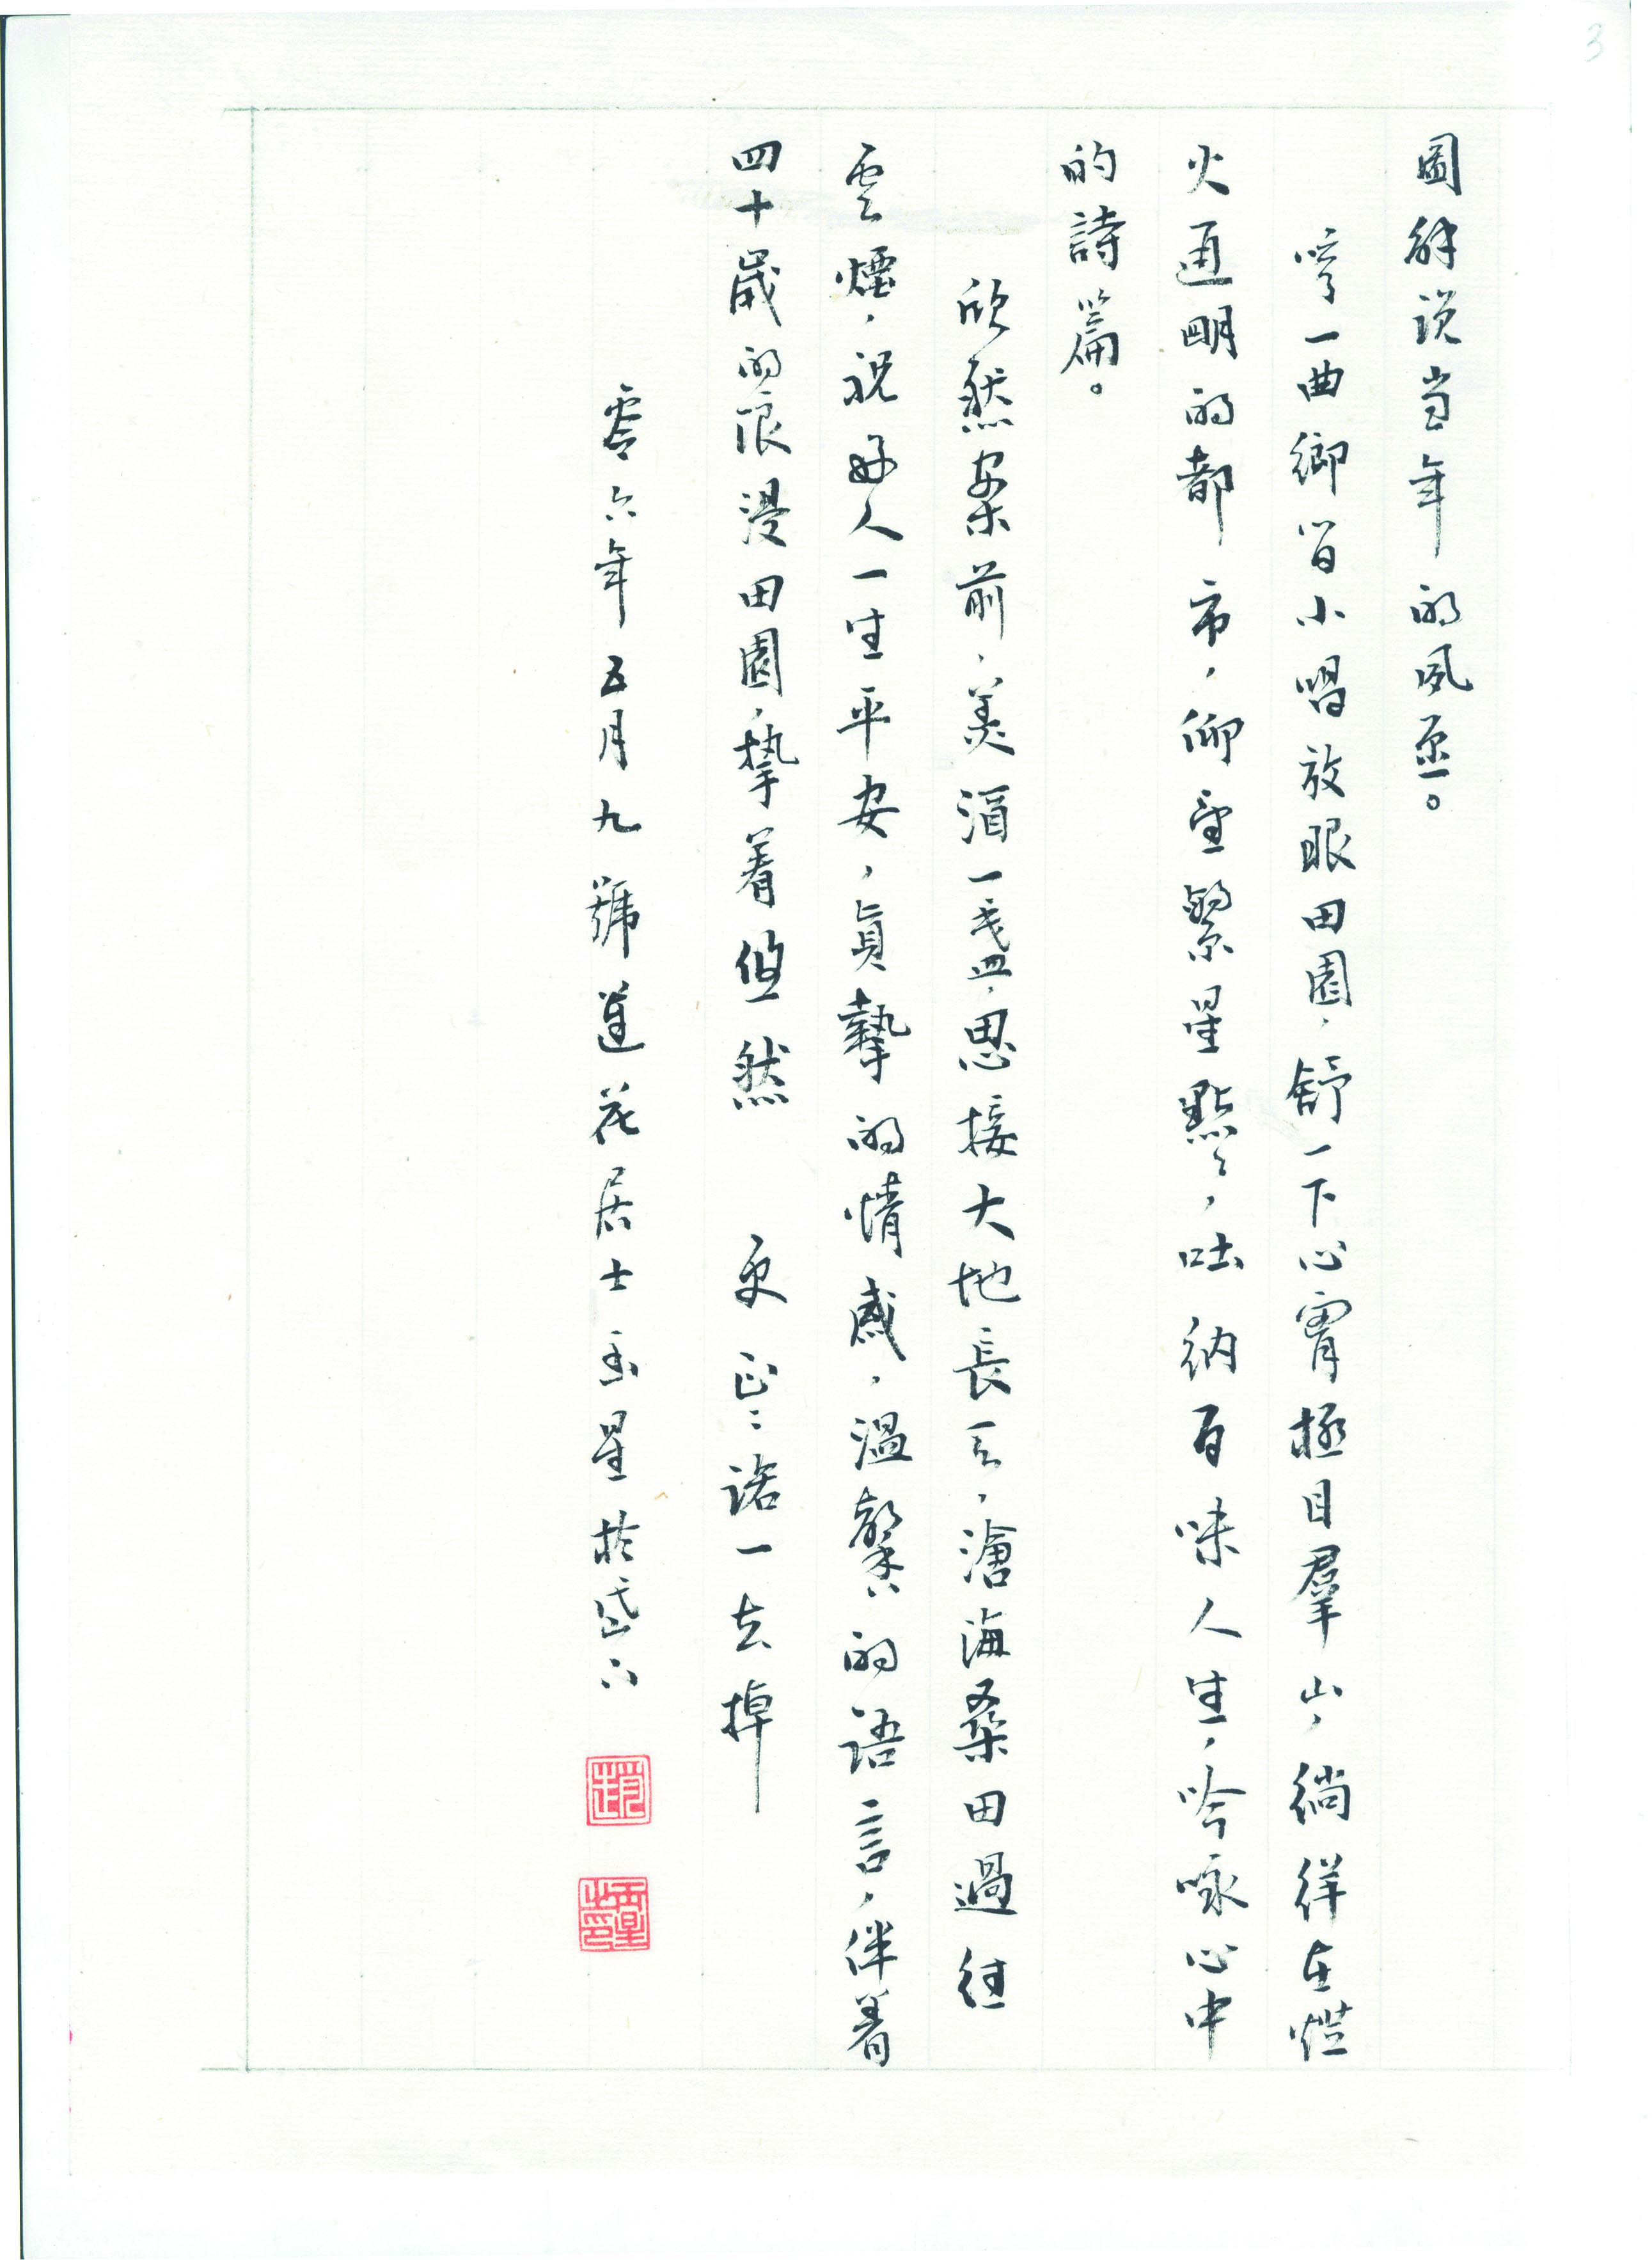 3
圖解说当年的夙。
哼一曲鄉間小唱放眼田園，舒一下心胃極目羣山，徜徉在燈
火通明的都市，仰望繁星點點，吐納百味人生，吟咏心中
的詩篇。
欣然案前，美酒一盏，思接大地長天，滄海桑田過往
雲煙，祝好人一生平安，真摯的情感，温馨的语言，伴着
四十歲的浪漫田園，摯着悠然 更正：諾一去掉
零六年五月九號蓮花居士玉星於岱下